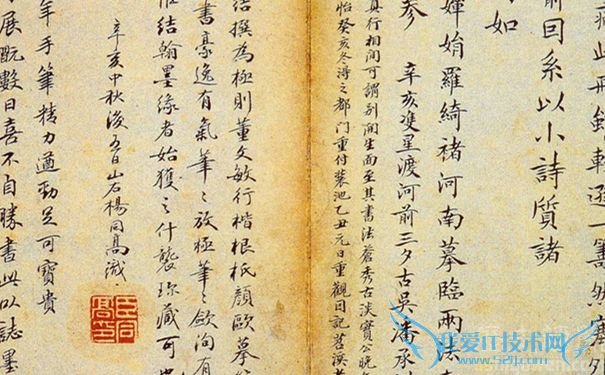 一籌然塵
前回系以小詩質諸
如
嬋娟羅綺褚河南摹臨兩
參 辛亥雙星渡河前三夕古吳潘承
真行相間可謂別開生面至其書法蒼秀古淡實公晚
怡癸亥冬得之都門重付裝池乙丑元日重觀因記苕溪
結撰為極則董文敏行楷根柢顏歐摹
書豪逸有氣筆々放極筆々斂向有
結翰墨緣者始獲之什襲珍藏可
辛亥中秋後五日山石楊同高識
年手筆精力遒勁足可寶貴
展翫數日喜不自勝書此以誌墨
我爱IT技术网